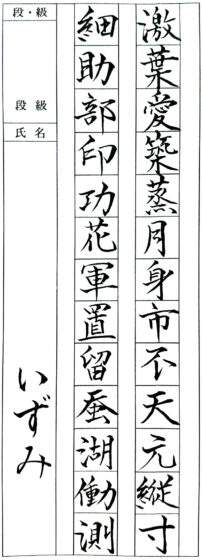 激葉愛築蒸月身市不天元縦寸
細助部印功花軍置留蚕湖働測
段・級
段級
氏名
いずみ